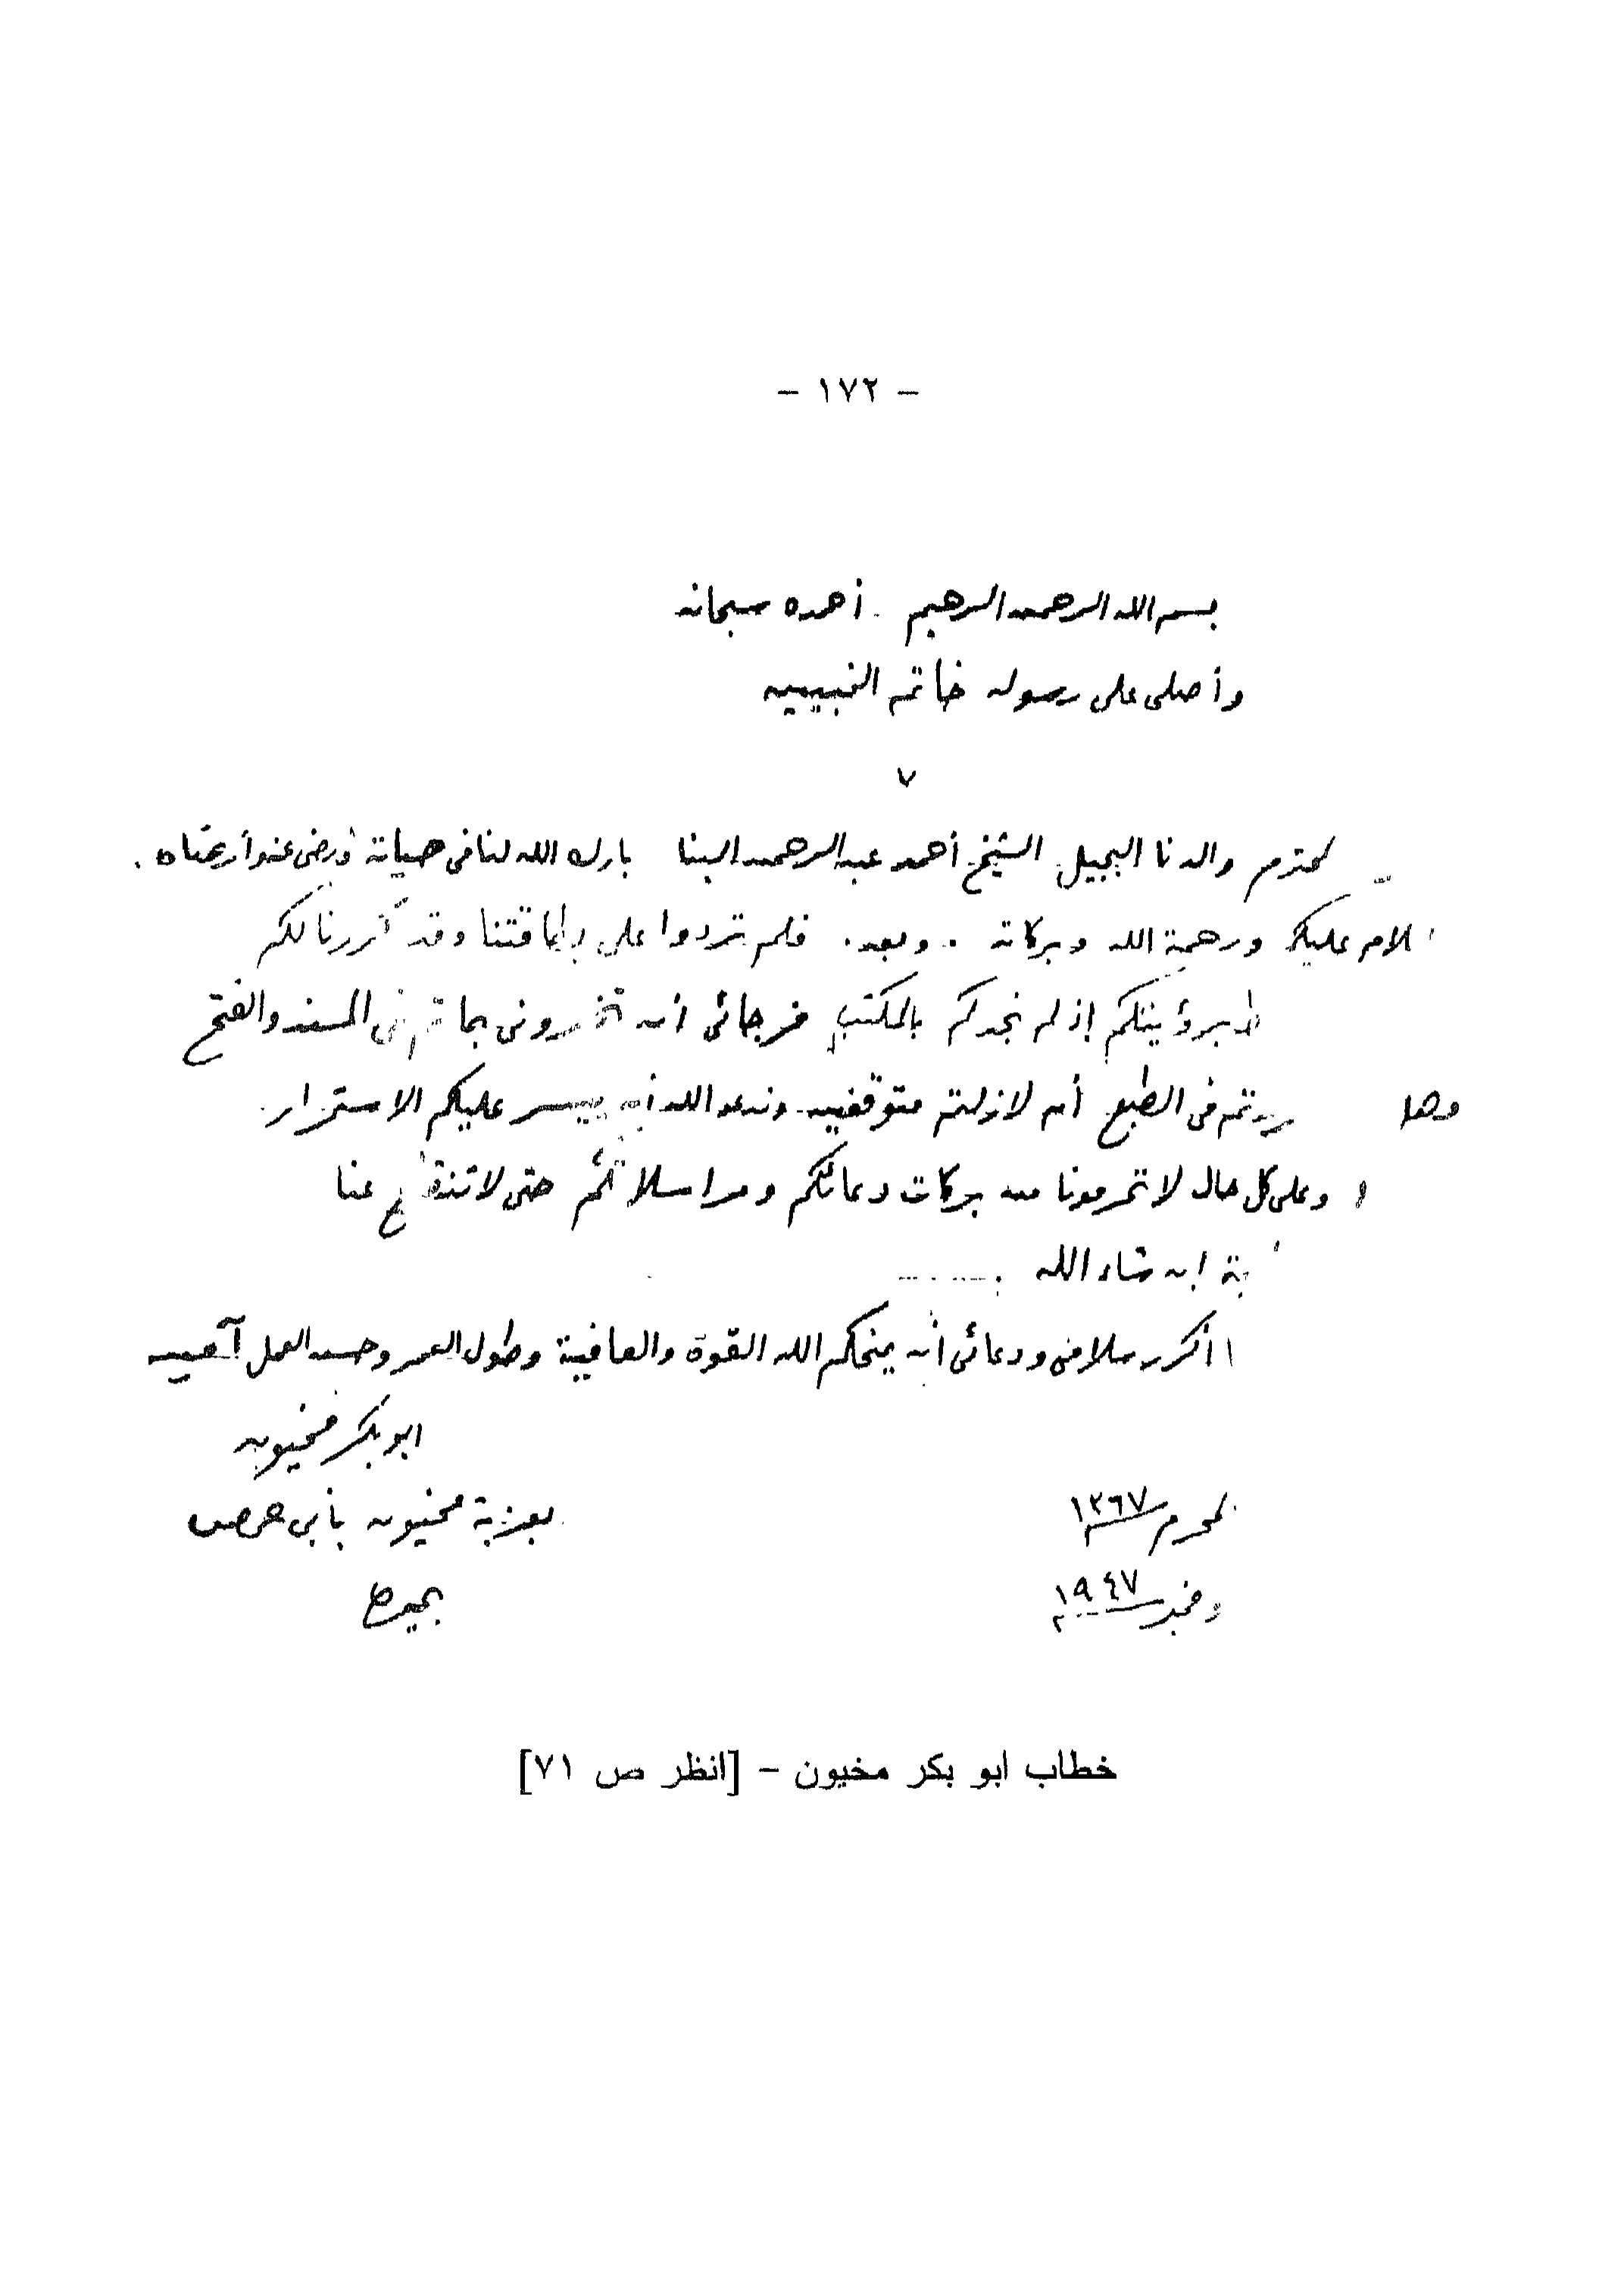 - ١٧٢ -
بسم الله الرحمن الرحيم . أحمده سبحانه
وأصلى على رسوله خاتم النبيين
٧
لمحترم والدنا البجيل الشيخ أحمد عبد الرحمن البنا بارك الله لنا فى حياته
لام عليكم ورحمة الله وبركاته . وبعد . فلم تردوا على بطاقتنا وقد كررنا لكم
برؤيتكم إذ لم نجدكم بالمكتب فرجائى أن تخبرونى بما تم فى المسند والفتح
وهل فى الطبع أم لازلتم متوقفين وندعو الله أن ييسر عليكم الاستمرار
وعلى كل حال لا تحرمونا من بركات دعائكم ومراسلاتكم حتى لا تنقطع عنا
إن شاء الله
أكرر سلامى ودعائى أن يمنحكم الله القوة والعافية وطول العمر وحسن العمل آمين
ابو بكر مخيون
بعزبة مخيون بأبى حمص
بحيرة
لمحرم ١٣٦٧
وفمبر ١٩٤٧ م
خطاب ابو بكر مخيون - [انظر ص ٧١]